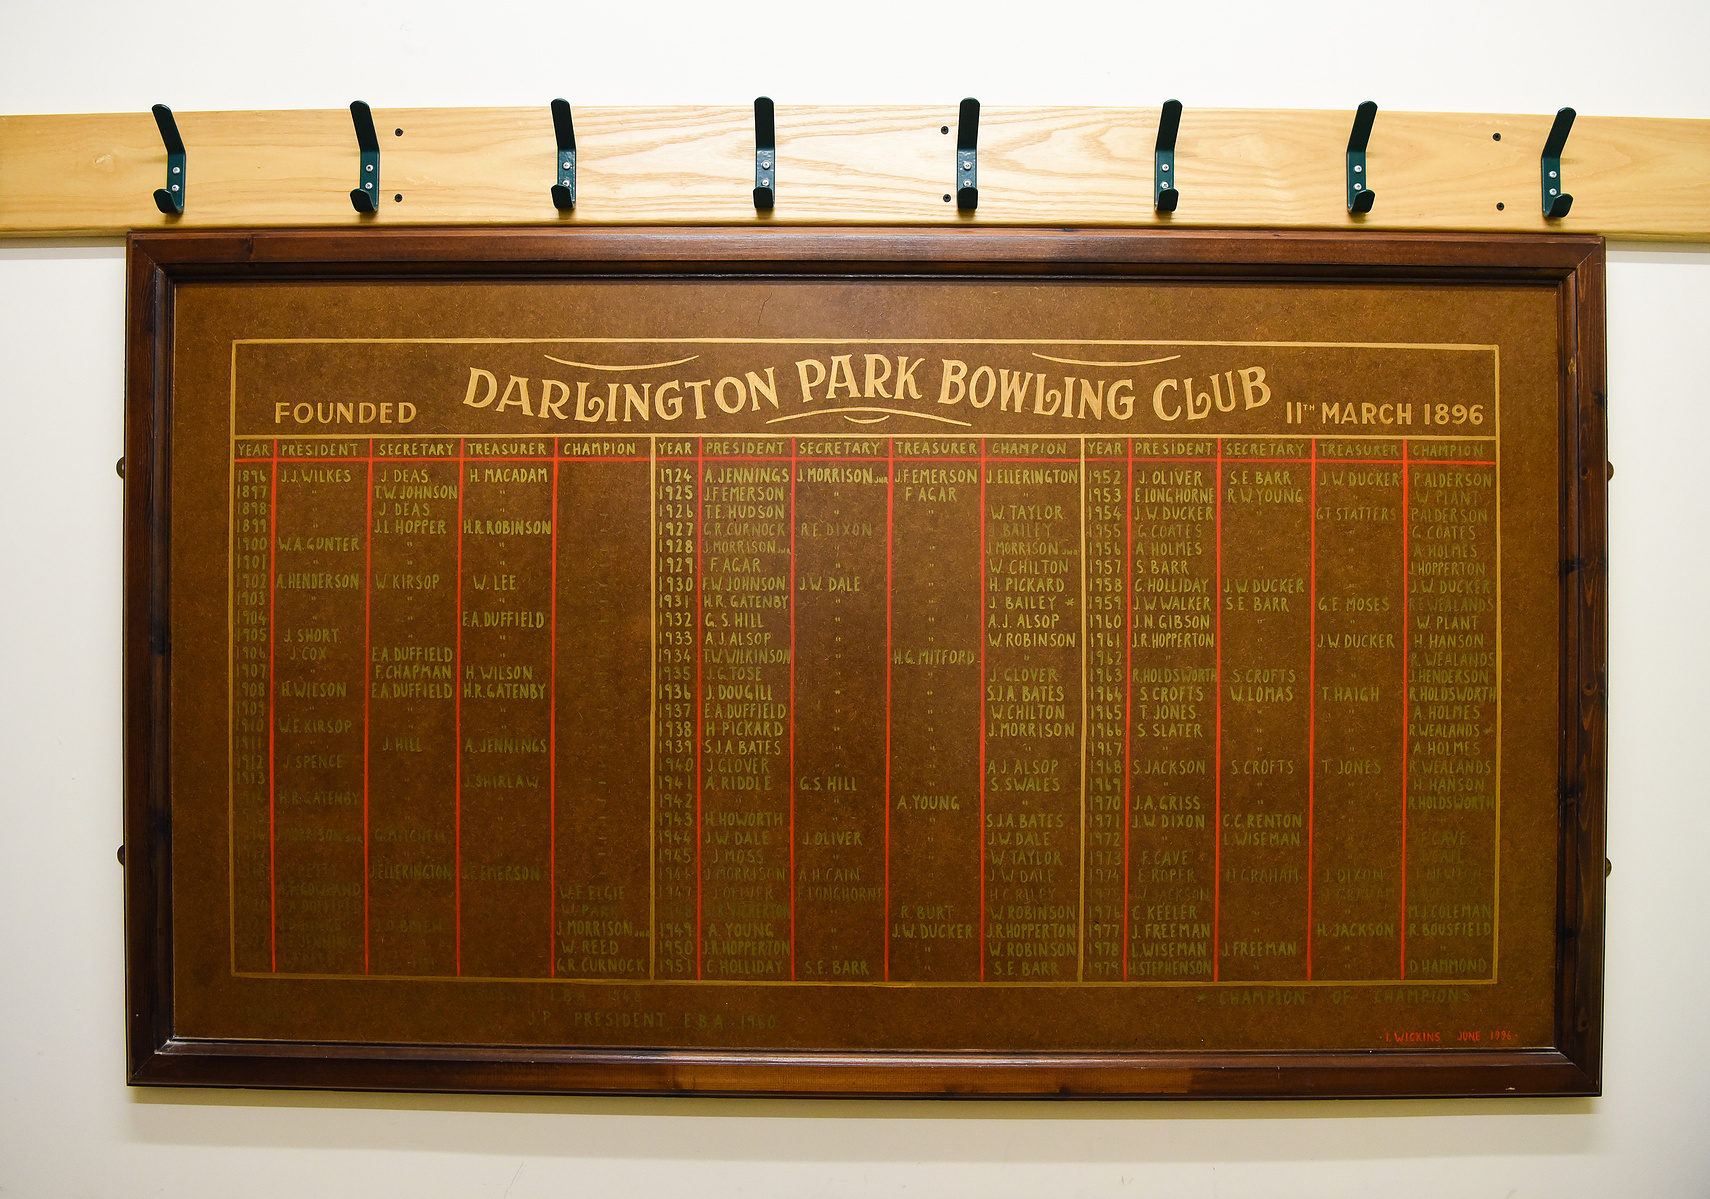 FOUNDED DARLINGTON PARK BOWLING CLUB 11TH MARCH 1896
YEAR PRESIDENT SECRETARY TREASURER CHAMPION
1896 J.J.WILKES J.DEAS H.MACADAM
1897 " T.W.JOHNSON "
1898 " J.DEAS "
1899 " J.L.HOPPER H.R.ROBINSON
1900 W.A.GUNTER " "
1901 " " "
1902 A.HENDERSON W.KIRSOP W.LEE
1903 " " "
1904 " " E.A.DUFFIELD
1905 J.SHORT " "
1906 J.COX E.A.DUFFIELD "
1907 " F.CHAPMAN H.WILSON
1908 H.WILSON E.A.DUFFIELD H.R.GATENBY
1909 " " "
1910 W.E.KIRSOP " "
1911 " J.HILL A.JENNINGS
1912 J.SPENCE " "
1913 " " J.SHIRLAW
1914 H.R.GATENBY " "
J.MORRISON G.MITCHELL
J.ELLERINGTON J.F.EMERSON
W.F.ELGIE
J.MORRISON JNR
W.REED
G.R.CURNOCK
YEAR PRESIDENT SECRETARY TREASURER CHAMPION
1924 A.JENNINGS J.MORRISON JNR J.F.EMERSON J.ELLERINGTON
1925 J.F.EMERSON " F.AGAR "
1926 T.E.HUDSON " " W.TAYLOR
1927 G.R.CURNOCK R.E.DIXON " BAILEY
1928 J.MORRISON JNR " " J.MORRISON JNR
1929 F.AGAR " " W.CHILTON
1930 F.W.JOHNSON J.W.DALE " H.PICKARD
1931 H.R.GATENBY " " J.BAILEY *
1932 G.S.HILL " " A.J.ALSOP
1933 A.J.ALSOP " " W.ROBINSON
1934 T.W.WILKINSON " H.G.MITFORD "
1935 J.G.TOSE " " J.GLOVER
1936 J.DOUGILL " " S.J.A.BATES
1937 E.A.DUFFIELD " " W.CHILTON
1938 H.PICKARD " " J.MORRISON
1939 S.J.A.BATES " " "
1940 J.GLOVER " " A.J.ALSOP
1941 A.RIDDLE G.S.HILL " S.SWALES
1942 " " A.YOUNG "
1943 H.HOWORTH " " S.J.A.BATES
1944 J.W.DALE J.OLIVER " J.W.DALE
1945 J.MOSS " " W.TAYLOR
1946 J.MORRISON A.H.CAIN " J.W.DALE
1947 J.OLIVER E.LONGHORNE " H.C.RILEY
1948 " R.BURT W.ROBINSON
1949 A.YOUNG " J.W.DUCKER J.R.HOPPERTON
1950 J.R.HOPPERTON " " W.ROBINSON
1951 C.HOLLIDAY S.E.BARR " S.E.BARR
YEAR PRESIDENT SECRETARY TREASURER CHAMPION
1952 J.OLIVER S.E.BARR J.W.DUCKER P.ALDERSON
1953 E.LONGHORNE R.W.YOUNG " W.PLANT
1954 J.W.DUCKER " G.T.STATTERS P.ALDERSON
1955 G.COATES " " G.COATES
1956 A.HOLMES " " A.HOLMES
1957 S.BARR " " J.HOPPERTON
1958 C.HOLLIDAY J.W.DUCKER " J.W.DUCKER
1959 J.W.WALKER S.E.BARR G.E.MOSES R.E.WEALANDS
1960 J.N.GIBSON " " W.PLANT
1961 J.R.HOPPERTON " J.W.DUCKER H.HANSON
1962 " " " R.WEALANDS
1963 R.HOLDSWORTH S.CROFTS " J.HENDERSON
1964 S.CROFTS W.LOMAS T.HAIGH R.HOLDSWORTH
1965 T.JONES " " A.HOLMES
1966 S.SLATER " " R.WEALANDS *
1967 " " " A.HOLMES
1968 S.JACKSON S.CROFTS T.JONES R.WEALANDS
1969 " " " H.HANSON
1970 J.A.GRISS " " R.HOLDSWORTH
1971 J.W.DIXON C.C.RENTON " "
1972 " L.WISEMAN " F.CAVE
1973 F.CAVE " "
1974 E.ROPER H.GRAHAM J.DIXON
1975 W.JACKSON " J.GRAHAM
1976 C.KEELER " " M.J.COLEMAN
1977 J.FREEMAN " H.JACKSON R.BOUSFIELD
1978 L.WISEMAN J.FREEMAN " "
1979 H.STEPHENSON " " D.HAMMOND
* CHAMPION OF CHAMPIONS
J.P. PRESIDENT E.B.A. 1960
I.WICKINS JUNE 1996